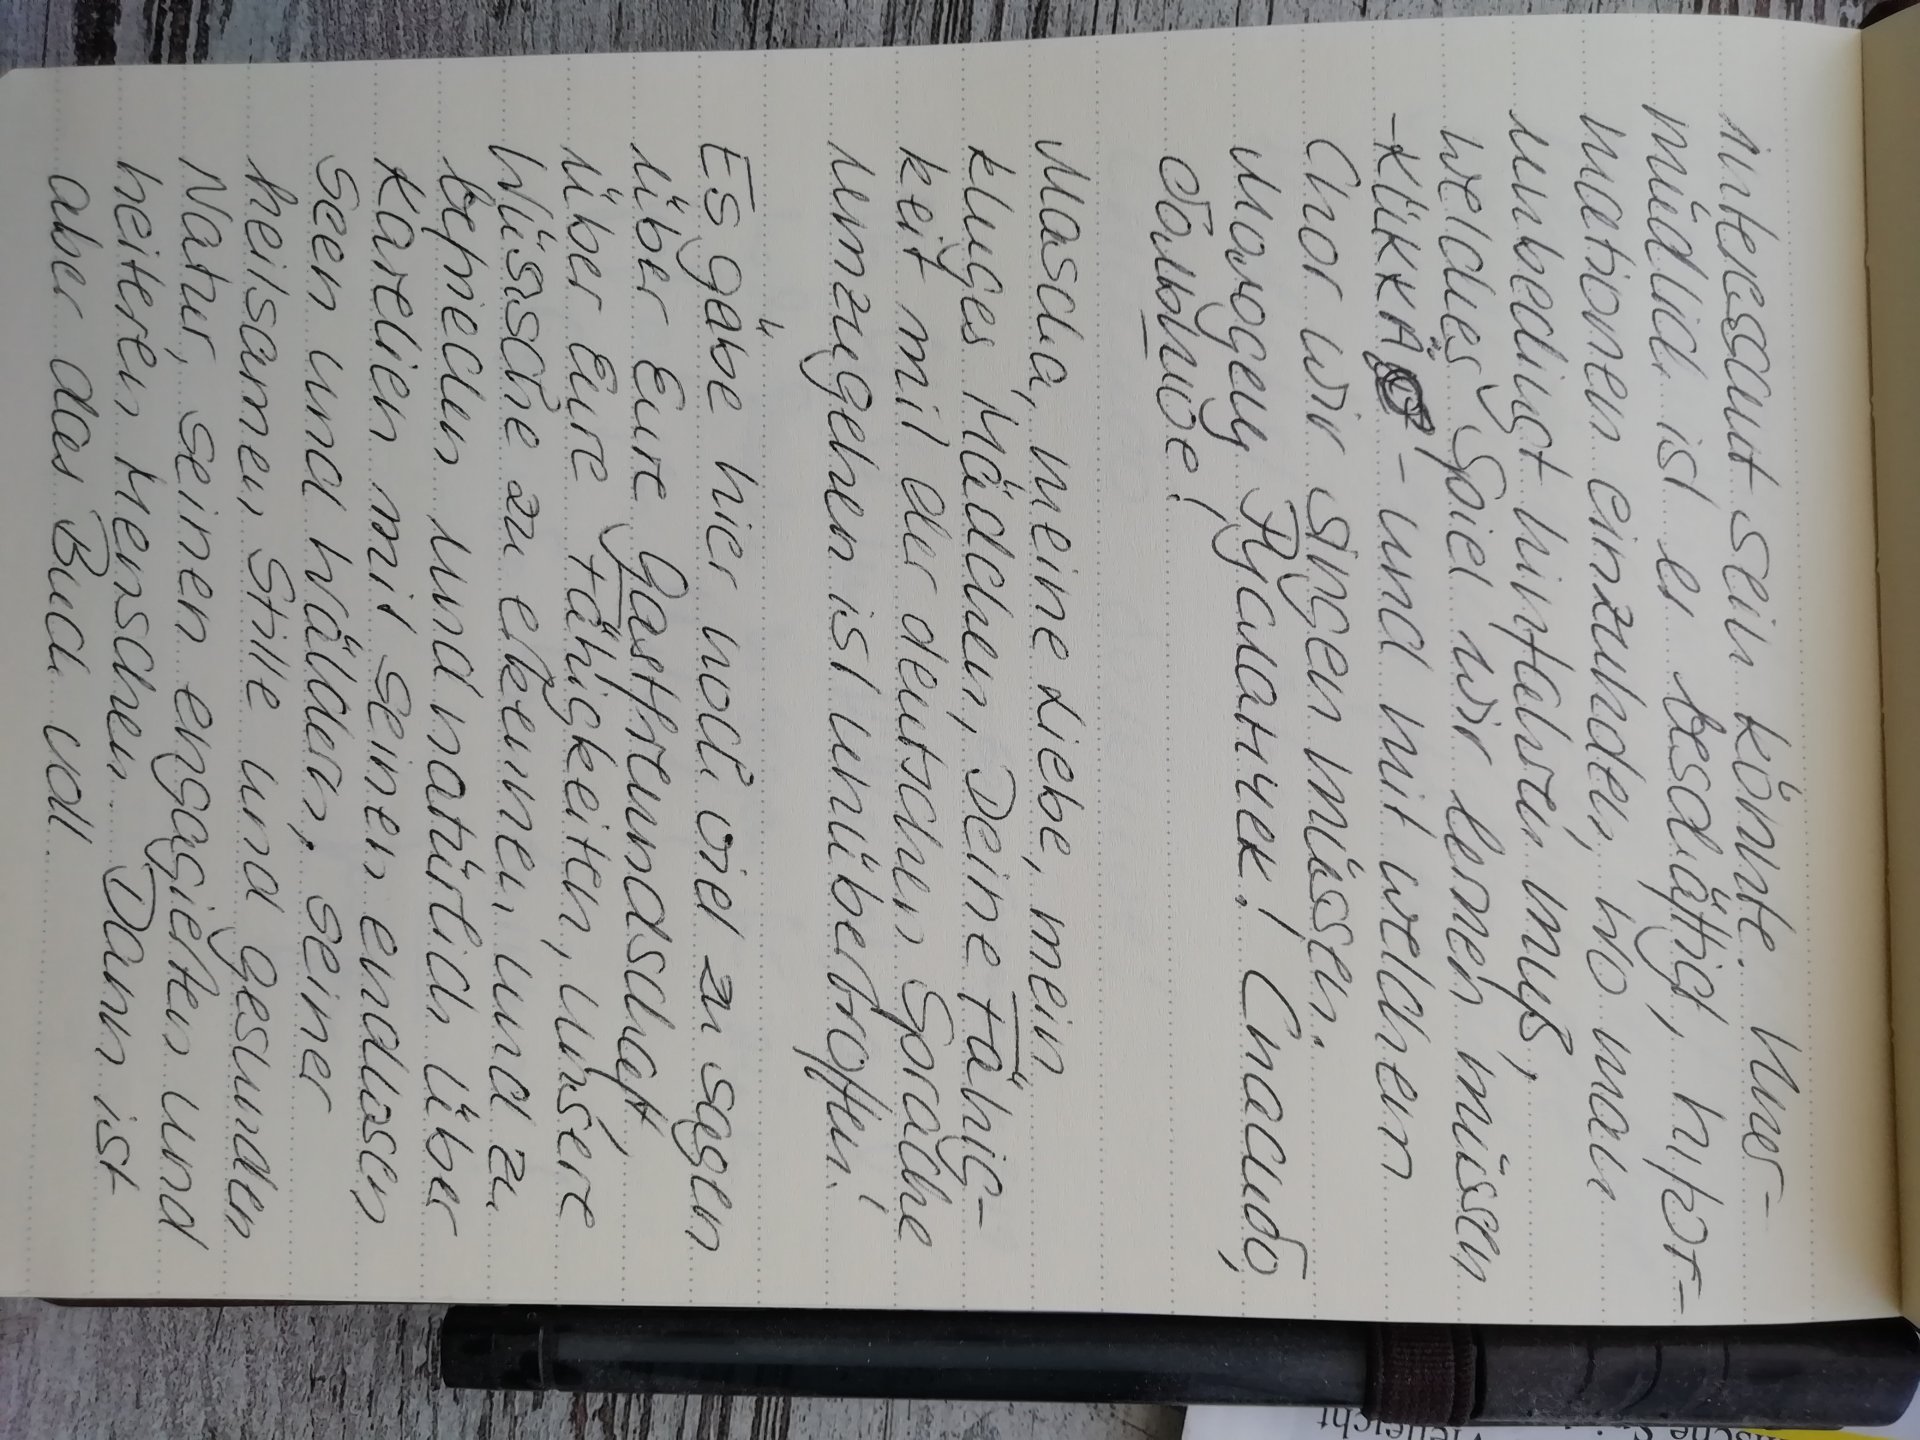 interessant sein könnte. Uner-
müdlich ist er beschäftigt, Infor-
mationen einzuholen, wo man
unbedingt hinfahren muß,
welches Spiel wir lernen müssen
- KÜKKÄ - und mit welchen
Chor wir singen müssen.
Молодец Русланчек! Спасибо,
большое!
Mascha, meine Liebe, mein
kluges Mädchen, Deine Fähig-
keit mit der deutschen Sprache
umzugehen ist unübertroffen!
Es gäbe hier noch viel zu sagen
über Eure Gastfreundschaft
über Eure Fähigkeiten, unsere
Wünsche zu erkennen und zu
und natürlich über
Karelien mit seinen endlosen
Seen und Wäldern, seiner
heilsamen Stille und gesunden
Natur, seinen engagierten und
heiteren Menschen. Dann ist
aber das Buch voll.
Vielleicht